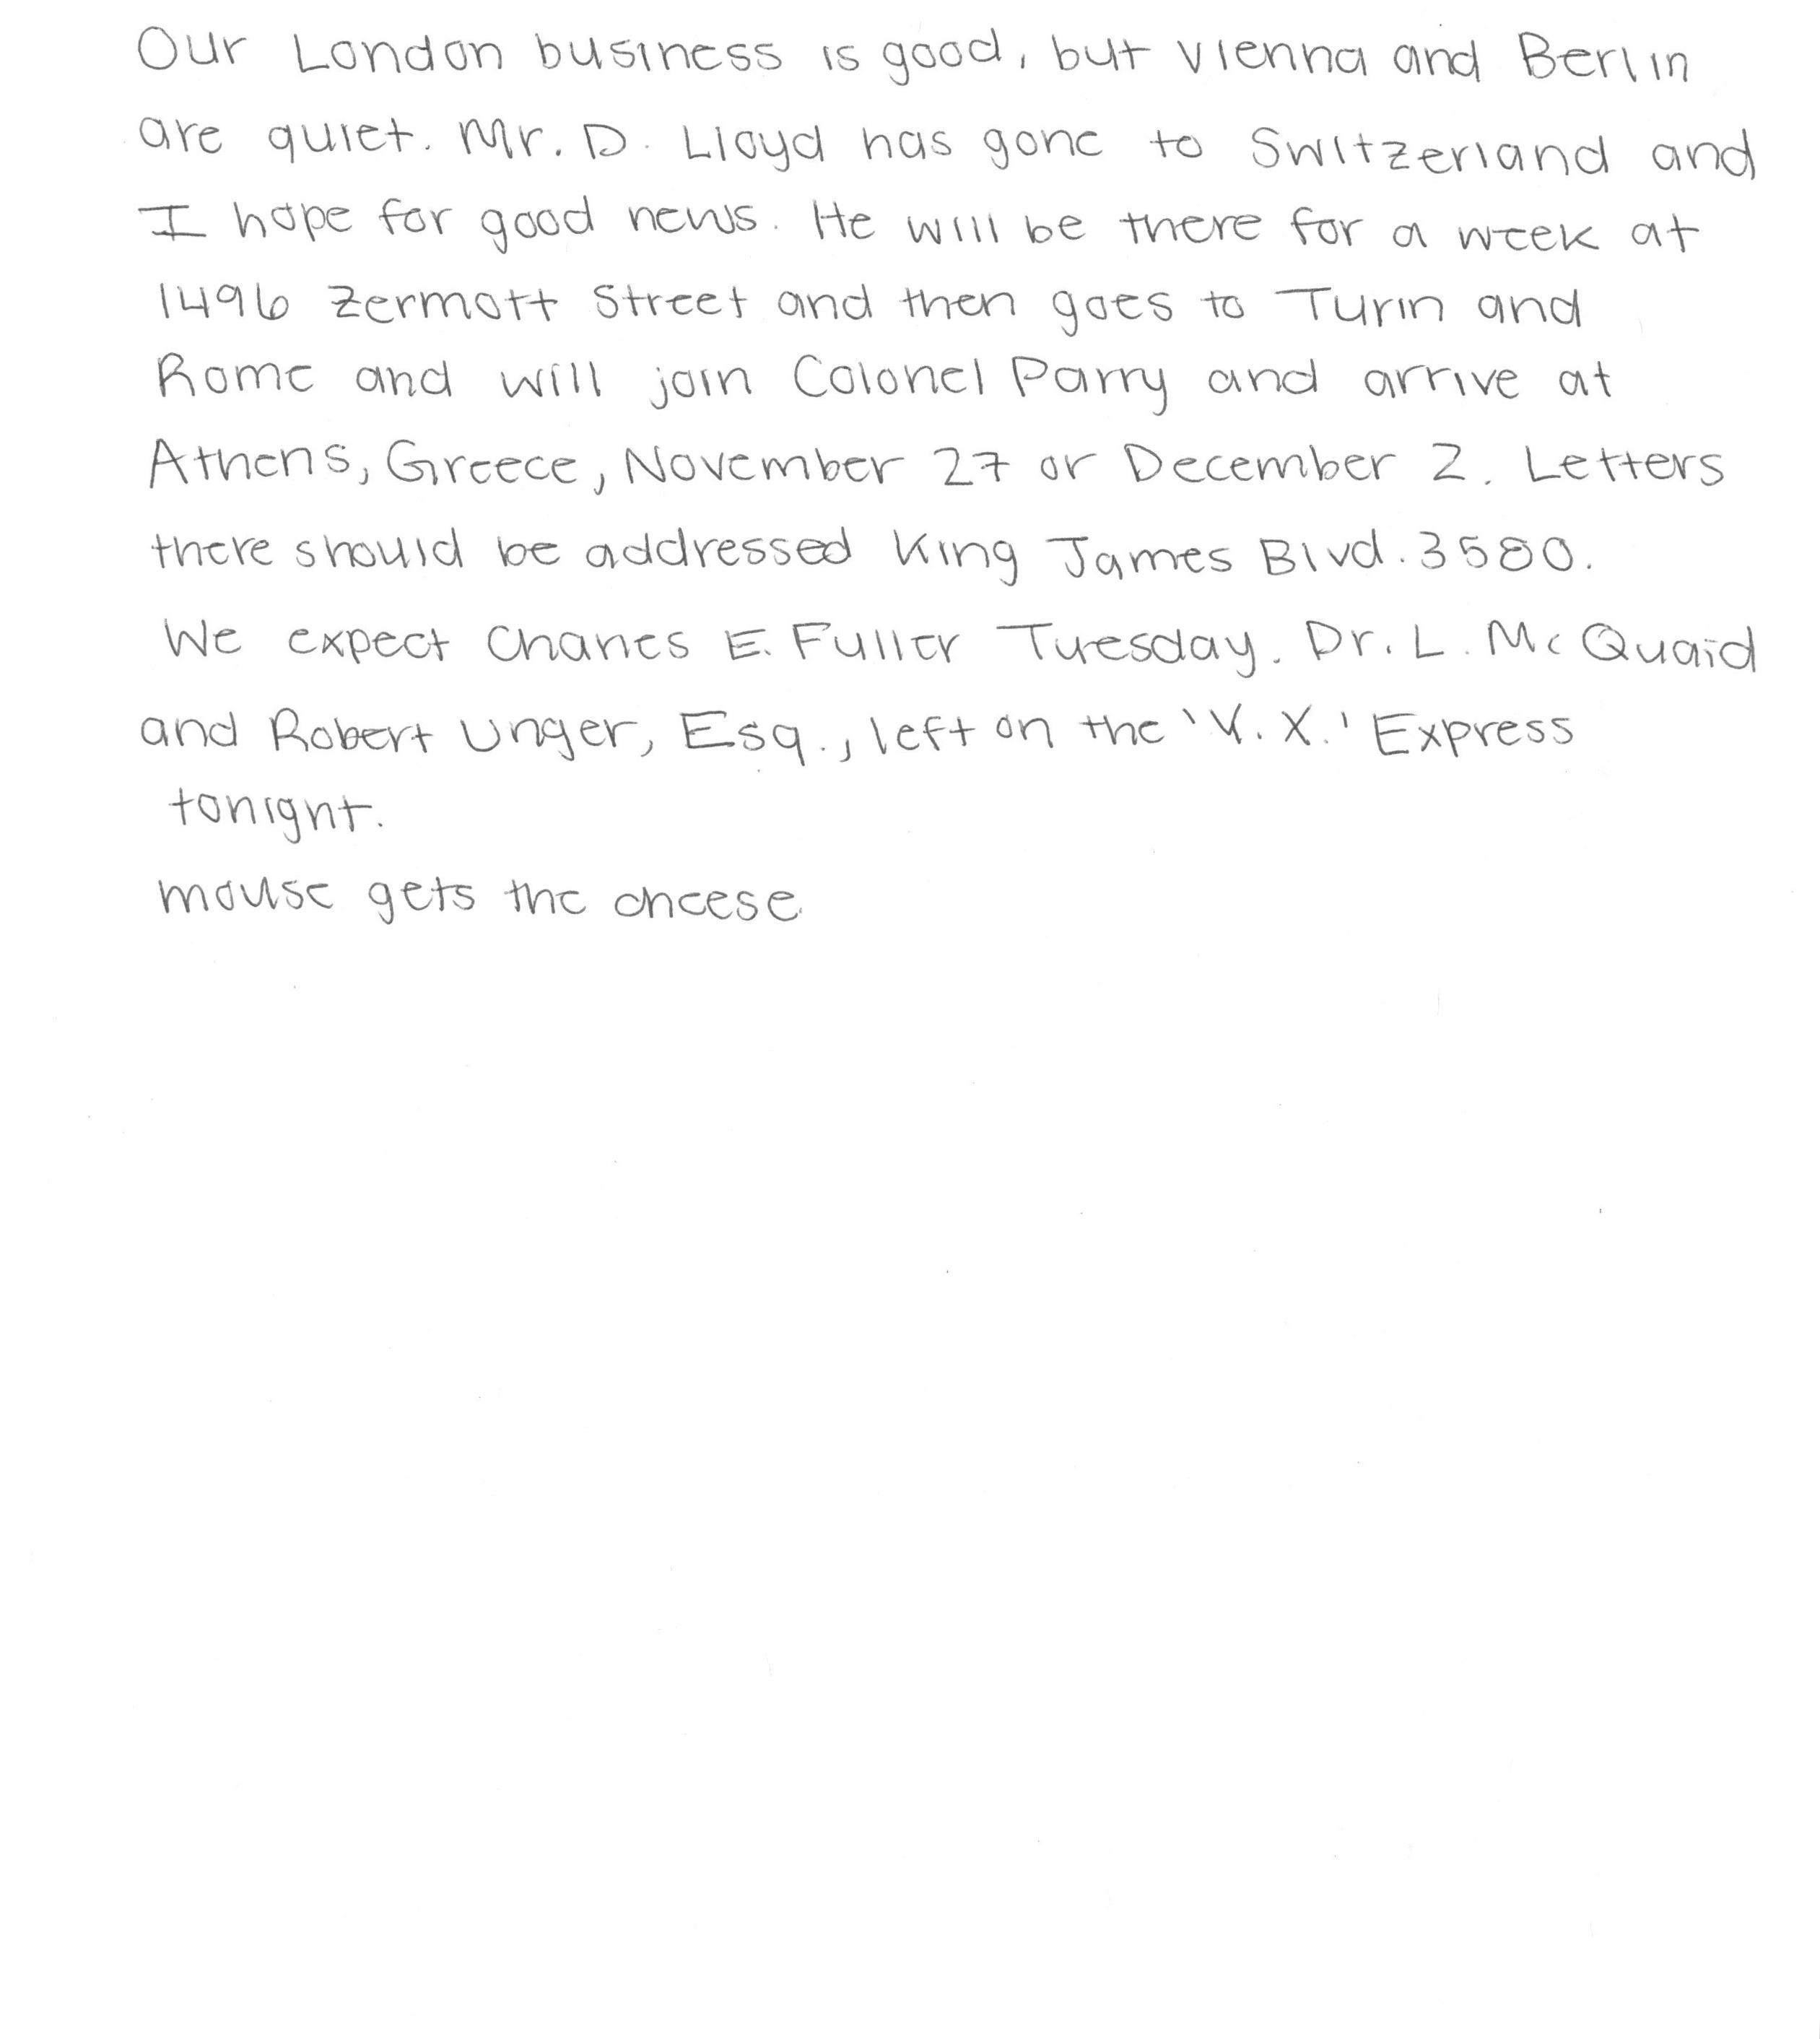 Our London business is good, but Vienna and Berlin
are quiet. Mr. D. Lloyd has gone to Switzerland and
I hope for good news. He will be there for a week at
1496 Zermott Street and then goes to Turin and
Rome and will join Colonel Parry and arrive at
Athens, Greece, November 27 or December 2. Letters
there should be addressed King James Blvd. 3580.
We expect Charles E. Fuller Tuesday. Dr. L. McQuaid
and Robert Unger, Esq., left on the 'Y. X.' Express
tonight.
mouse gets the cheese.